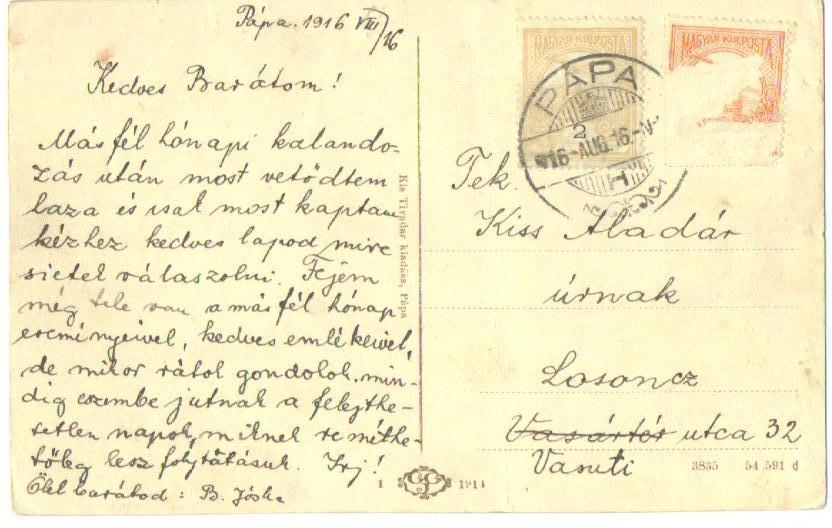 Pápa. 1916 VIII/16
Kedves Barátom!
Másfél hónapi kalando-
zás után most vetődtem
haza és csak most kaptam
kézhez kedves lapod mire
sietek válaszolni. Fejem
még tele van a másfél hónap
eseményeivel, kedves emlékeivel,
de mikor rátok gondolok, min-
dig eszembe jutnak a felejthe-
tetlen napok, miknek reméthe-
tőleg lesz folytatásuk. Irj!
Ölel barátod: B. Jóska
Kis Tivadar kiadása, Pápa
1 1914
MAGYAR KIR. POSTA
MAGYAR KIR. POSTA
PÁPA
916-AUG.16.-V
Tek.
Kiss Aladár
úrnak
Losoncz
Vasártér utca 32
Vasuti
3835 54 591 d